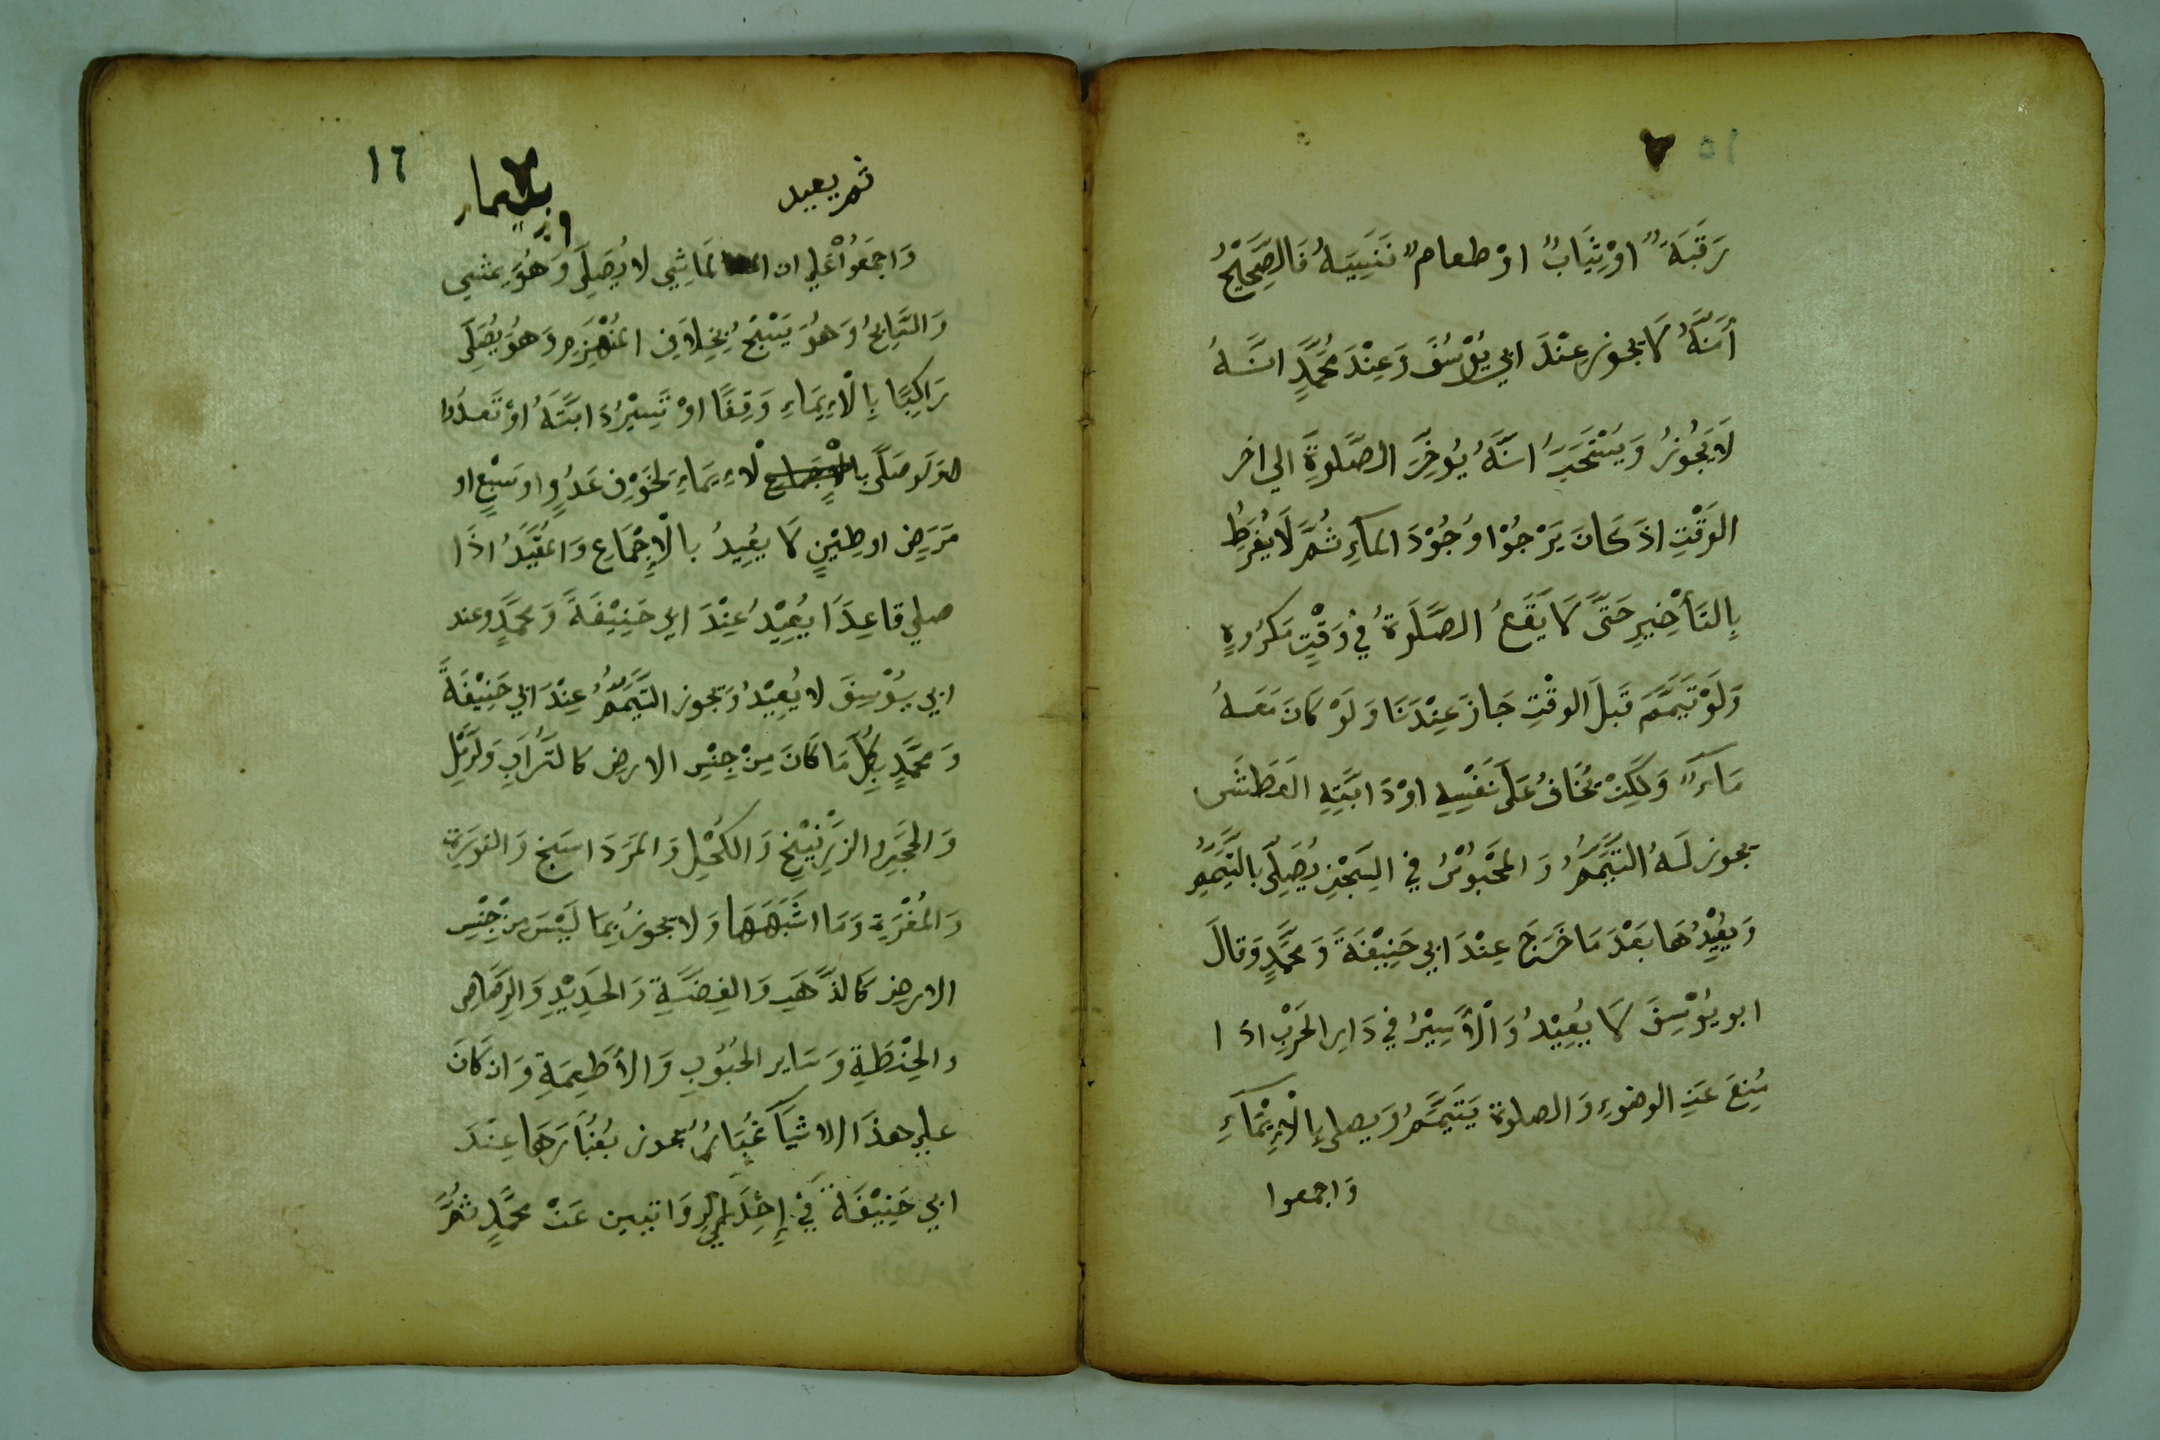 ١٥
رَقَبَةَ اَوْ ثِيَابٌ اوْ طعام فَنَسِيَهُ فَالصَّحِيْحُ
أَنَّهُ لَا يجوز عِنْدَ ابي يُوْسُفَ وَعِنْدَ مُحَمَّدٍ انَّهُ
لَا يَجُوْزُ وَيَسْتَحَبُّ انَّهُ يُوَخِّرَ الصَّلوةَ الي اخر
الوَقْتِ اذَ كَانَ يَرْجُوْا وُجُوْدَ الماَءِ ثُمَّ لَا يُفَرِطُ
بِالتَأخْيرِ حَتَّى لَا يَقَعُ الصَّلَوةُ فِي وَقْتٍ مَكرُوهٍ
وَلَوْ تَيَمَّمَ قَبلَ الوقْتِ جَازَ عِنْدَنَا وَلَوْ كَانَ مَعَهُ
مَاَءٌ وَلَكِنْ يَخَافُ عَلَى نَفْسِهِ اوْ دَابَّتِهِ العَطَشَى
يجوز لَهُ التَّيَمُّمُ وَ المَحْبُوْسُ في السِجْنِ يُصَلِّى بِالتَّيَمُّمِ
وَيُعِيْدُهَا بَعْدَ مَا خَرَجَ عِنْدَ ابي حَنِيْفَةَ وَ مُحَمَّدٍ وَقالَ
ابو يُوْسِفَ لَا يُعِيْدُ وَالْأَسِيْرُ في دَارِ الحَرْبِ اذَا
مُنِعَ عَنِ الوضوءِ وَالصلوة يَتَيَمَّمُ وَيصلى بِالْاِيْمَاَءِ
وَاجمعوا
١٦
ثم يعيد
بالايماء
وَاجمَعوُاْ عَلي ان المَاشِي لا يُصَلِّى وَهُوَ يمشي
وَالسَّابِحُ وَهُوَ يَسْبَحُ بِخِلَافِ المُنْهَزِمِ وَهُوَ يُصَلَّى
رَاكِبًا بِالْاءِيمَاءِ وَقِفًا اوْ تَسِيْرُ دَابَتَهُ اوْ تَعدُوا
ولوصَلَّى بالْاءِيمَاءِ لِخَوْفِ عَدُوٍ اوسَبْعٍ او
مَرَضِ اوطِيْنٍ لَا يعُيدُ بالْاِجْمَاعِ وَالمقيَّدُ اذَا
صلي قاعِدَا يُعِيْدُ عِنْدَ ابِي حَنِيْفَةَ وَ مُحَمَّدٍ وعند
ابي يُوْسِفَ لا يُعِيْدُ وَيجوز التَيَمَّمُ عِنْدَ ابي حَنِيْفَةَ
وَ مُحَمَّدٍ بِكُلِّ مَا كَانَ مِنْ جِنْسِ الارض كا لتُرَابِ وَلرَمْلِ
وَ الحَجَرِ والزِرْنِيْخِ وَ الكُحْلِ وَالمَرَدَاسَنج وَالنورَةِ
وَالمُغْرَةِ وَمَا اشَبَهَهَا وَلا يجوزُ بِمَا لَيْسَ مِنْ جِنْسِ
الارضِ كَالذَّهَبِ وَالفِضَّةِ وَالحَدِيْدِ وَالرَصَاصِ
والحِنْطَةِ وَسَاير الحُبُوْبِ وَالأطَعِمَةِ وَان كَانَ
عَلَى هذَا الاشَيَاَ غُبَارٌ يجوز بُغبُارَهَا عِنْدَ
ابي حَنِيْفَةَ فِيْ إِحْدَى الرِوَاتيين عَنْ مُحَمَّدٍ ثمَّ